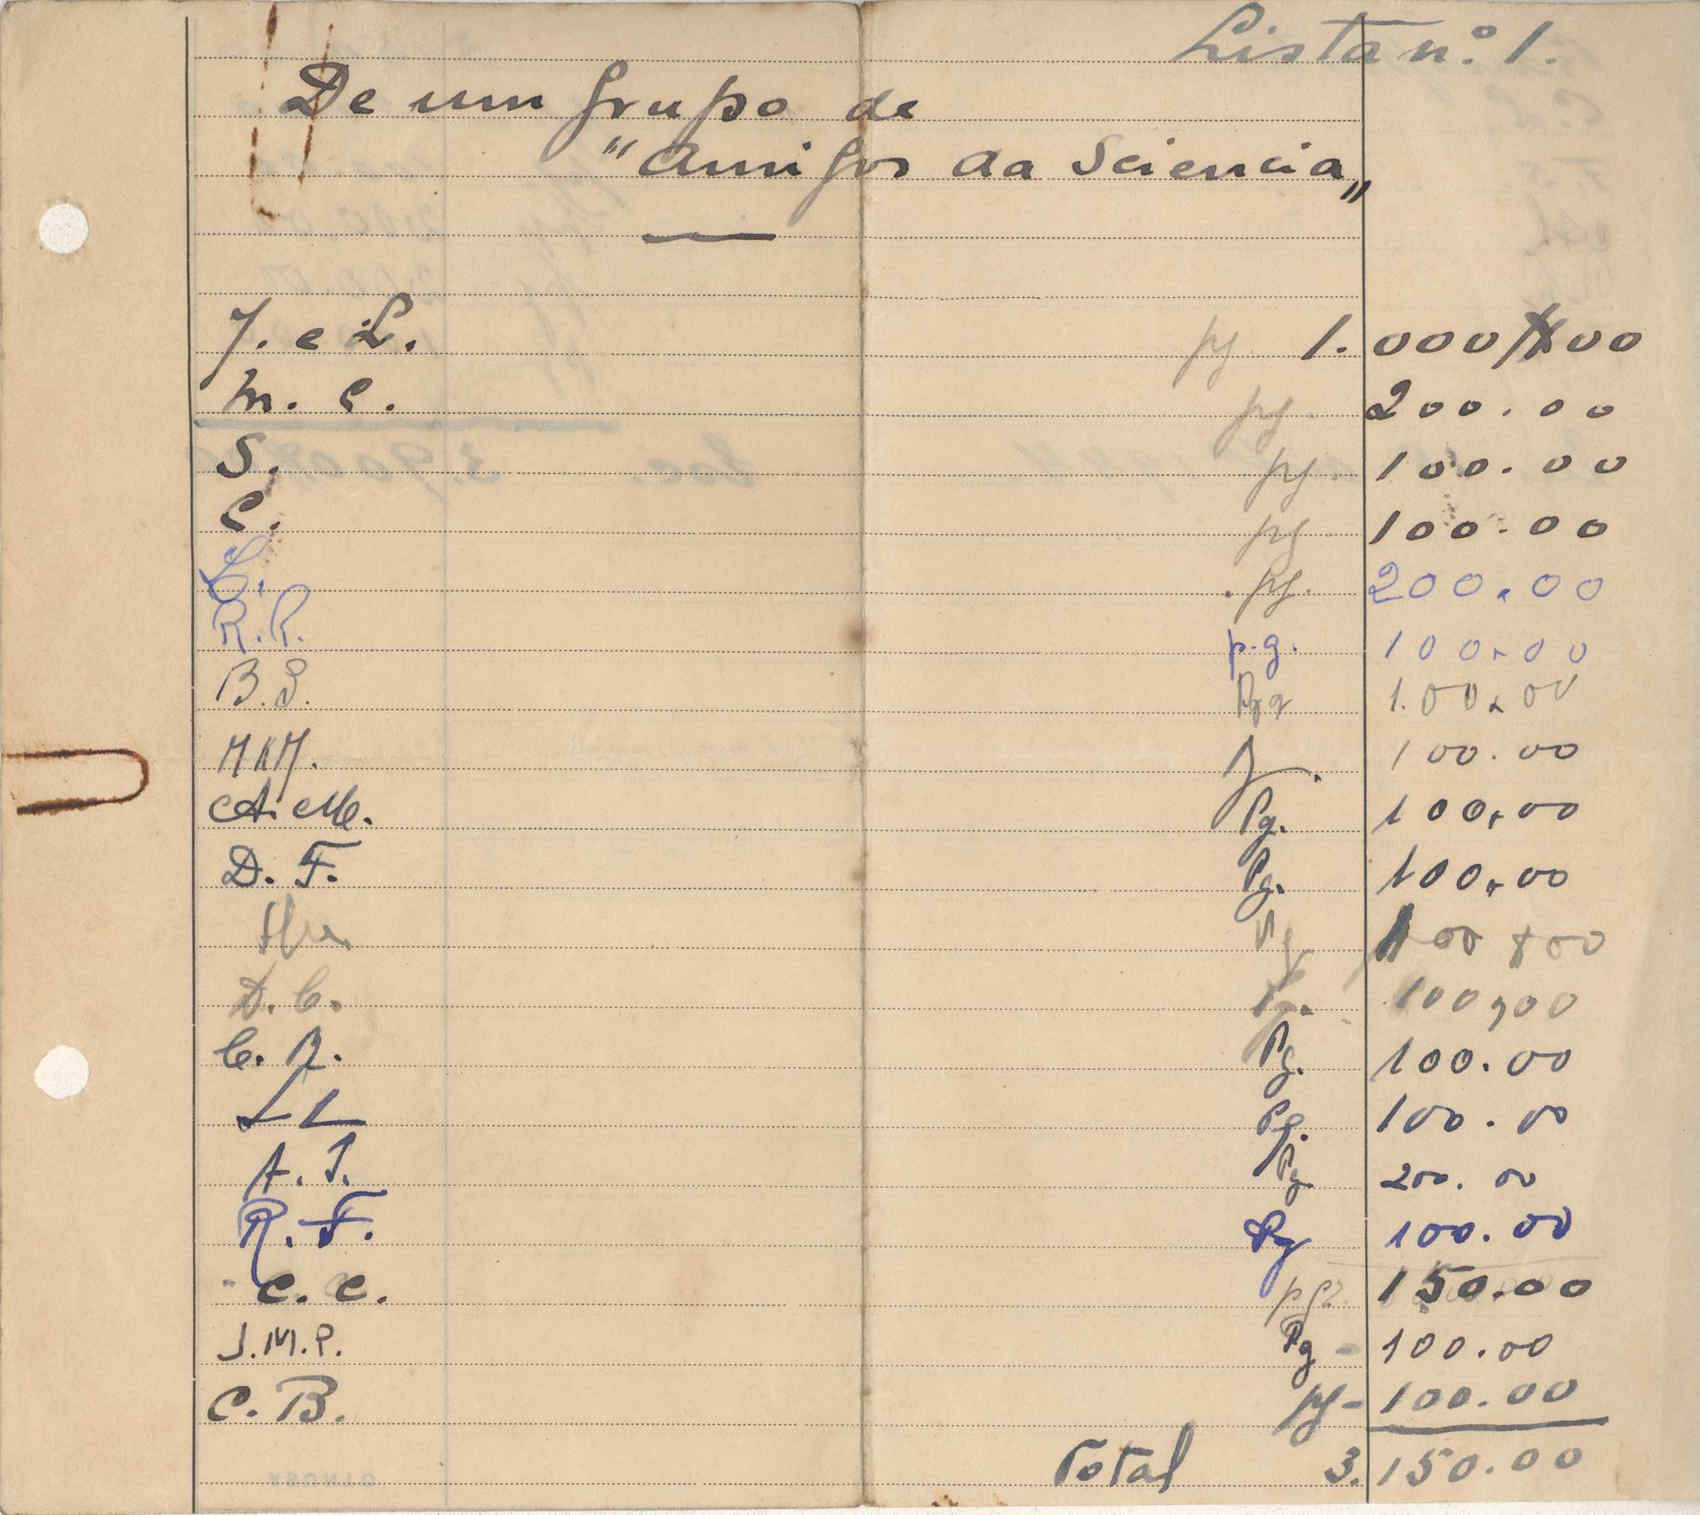 Lista n.º 1.
De um grupo de
"Amigos da Sciencia"
J. e L. pg 1.000,00
M. C. pg. 200.00
S. pg. 100.00
C. pg. 100.00
L. pg. 200.00
R.P. p.g. 100.00
B.S. Pg 1.00.00
MKM. 100.00
A. M. Pg. 100.00
D. F. Pg. 100.00
100$00
D. C. Pg. 100,00
C. R. Pg. 100.00
L L Pg. 100.00
A. J. Pg 200.00
R. F. Pg 100.00
C. C. pg. 150.00
J.M.P. Pg - 100.00
C. B. pg - 100.00
Total 3.150.00